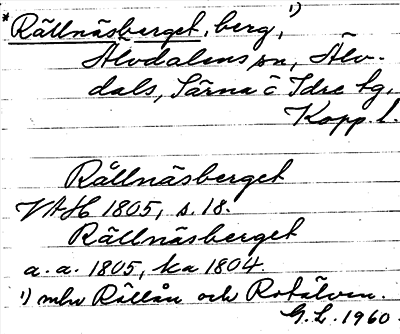 *Rällnäsberget, berg, ¹)
Älvdalens sn, Älv-
dals, Särna o Idre tg,
Kopp. l.
Rållnäsberget
VAH 1805, s. 18.
Rällnäsberget
a. a. 1805, ka 1804.
¹) mln Rällån och Rotälven.
G. L. 1960.